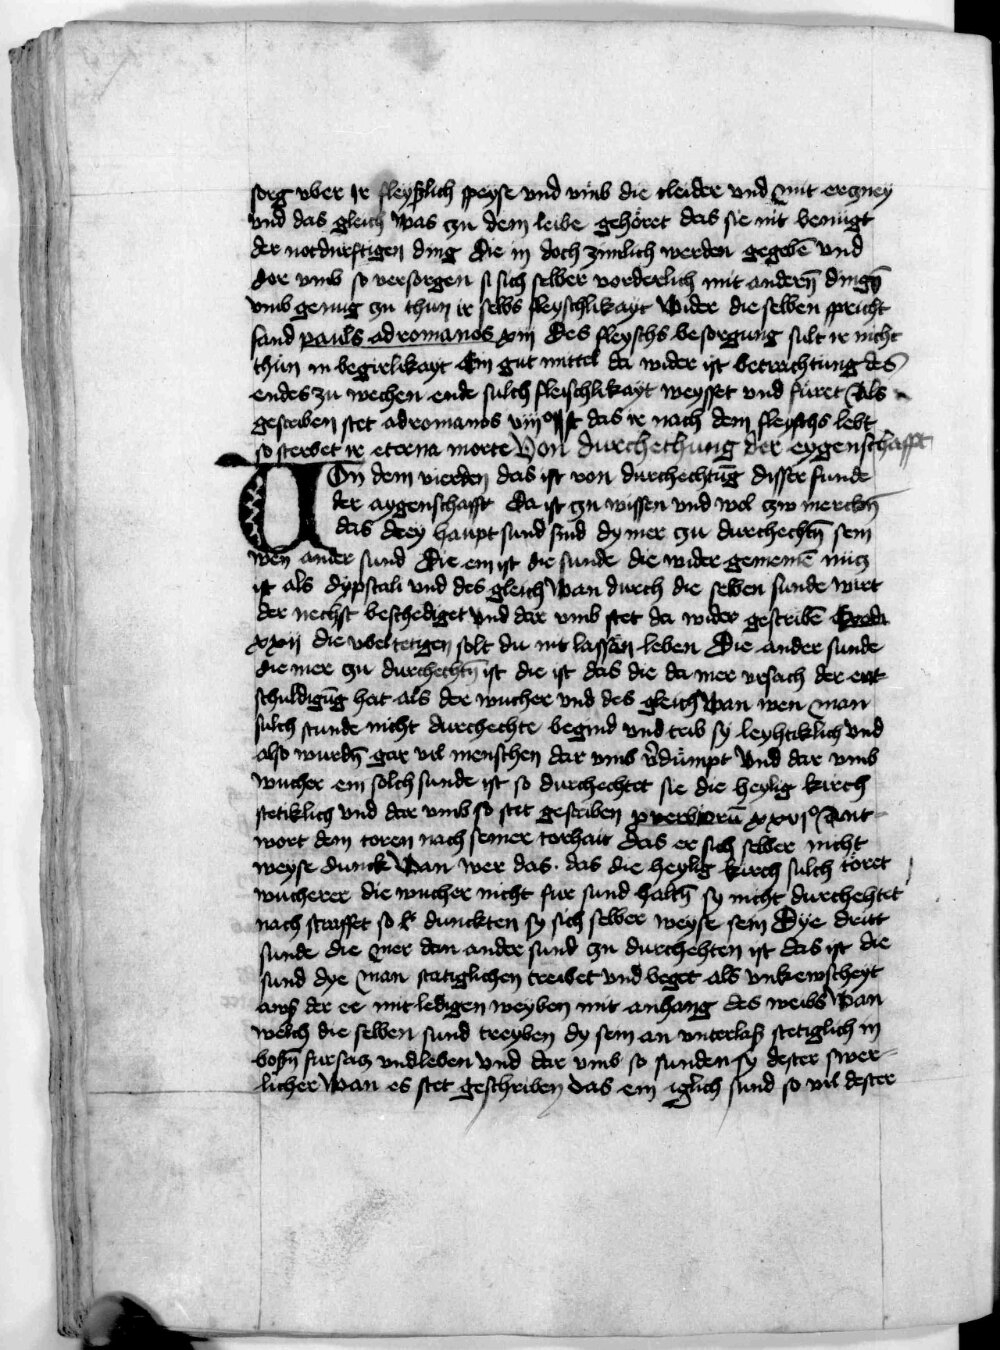 sorg vber ir fleyschlich speyse vnd vmb die cleider vnd mit erczney
vnd das gleich was zu dem leibe gehöret das sie nit benügt
der notdurftigen ding die in doch zimlich werden gegebē vnd
dor vmb so versorgen si sich selber vorderlich mit andern̄ dingē
vmb genug zu thun ir selbs fleyschlikayt Wider die selben spricht
sand pauls ad romanos xiij Des fleyschs besorgung sult ir nicht
thun in begirlikayt Ein gut mittel da wider ist betrachtung des
endes zu wechen ende sulch fleischlikayt weysset vnd füret Als
gescriben stet ad romanos viijº Ist das ir nach dem fleyschs lebt
so sterbet ir eterna morte Von durchechtung der eygenschafft
Uon dem vierden das ist von durchechtūg disser sunde
der aygenschafft Da ist zu wissen vnd wol zw mercken̄
das drey haupt sund sind dy mer zu durchechtn̄ sein
wen ander sund Die ein ist die sunde die wider gemeinē nücz
ist als dypstali vnd des gleich Wan durch die selben sunde wirt
der nechst beschediget vnd dar vmb stet da wider gescribē Exodi
xxij die vbeltetigen solt du nit lassen leben Die ander sunde
die mer zu durchechtn̄ ist die ist das die da mer vrsach der ent
schuldigūg hat als der wucher vnd des gleich Wan wen man
sulch sunde nicht durchechte begind vnd trib sy leyhtiklich vnd
also wurdn̄ gar vil menschen dar vmb v̄dümpt Vnd dar vmb
wucher ein solch sunde ist so durchechtet sie die heylig kirch
stetiklich vnd dar vmb so stet gescriben proverbiorū xxviº Ant
wort dem toren nach seiner torhait das er sich selber nicht
weyse dunck Wan wer das das die heylig kirch sulch töret
wucherer die wucher nicht fur sund haltn̄ sy nicht durchehtet
nach straffet so dunckten sy sich selber weyse sein Dye dritt
sunde die mer dan ander sund zu durchehten ist das ist die
sund dye man statiglichen treibet vnd beget als vnkewscheyt
awß der ee mit ledigen weyben mit anhang des weibs Wan
welch die selben sund treyben dy sein an vnterlaß stetiglich in
bosn̄ fursacz vnd leben Vnd dar vmb so sunden sy dester swer
licher Wan es stet geschriben Das ein iglich sund so vil dester